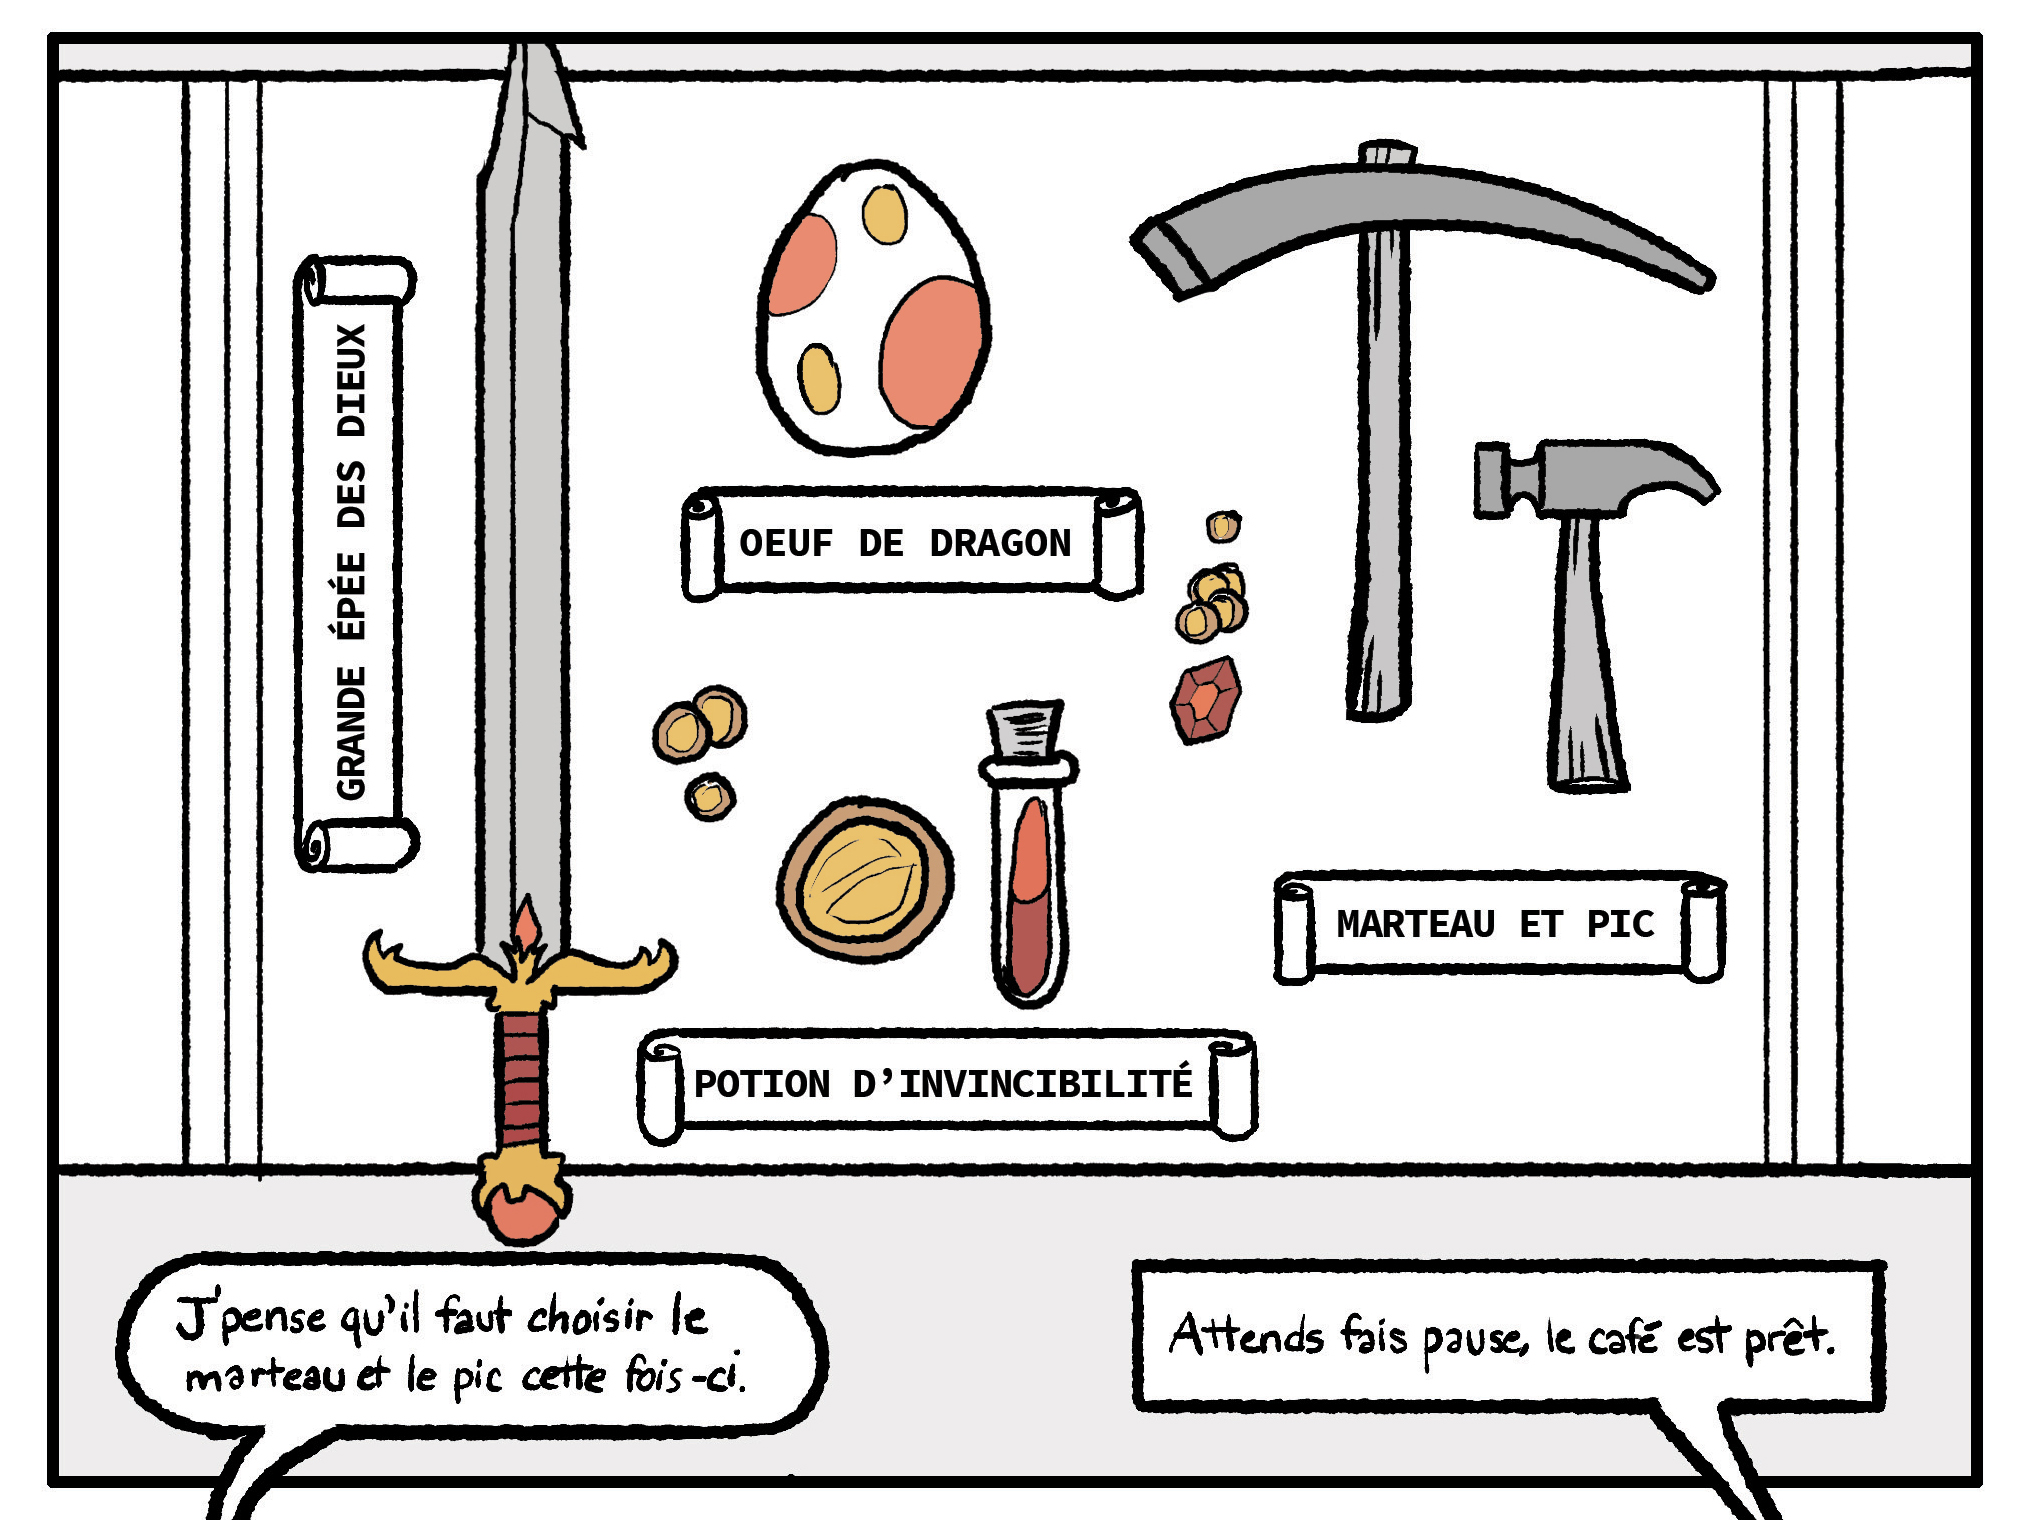 GRANDE ÉPÉE DES DIEUX
OEUF DE DRAGON
MARTEAU ET PIC
POTION D’INVINCIBILITÉ
J'pense qu'il faut choisir le
marteau et le pic cette fois-ci.
Attends fais pause, le café est prêt.